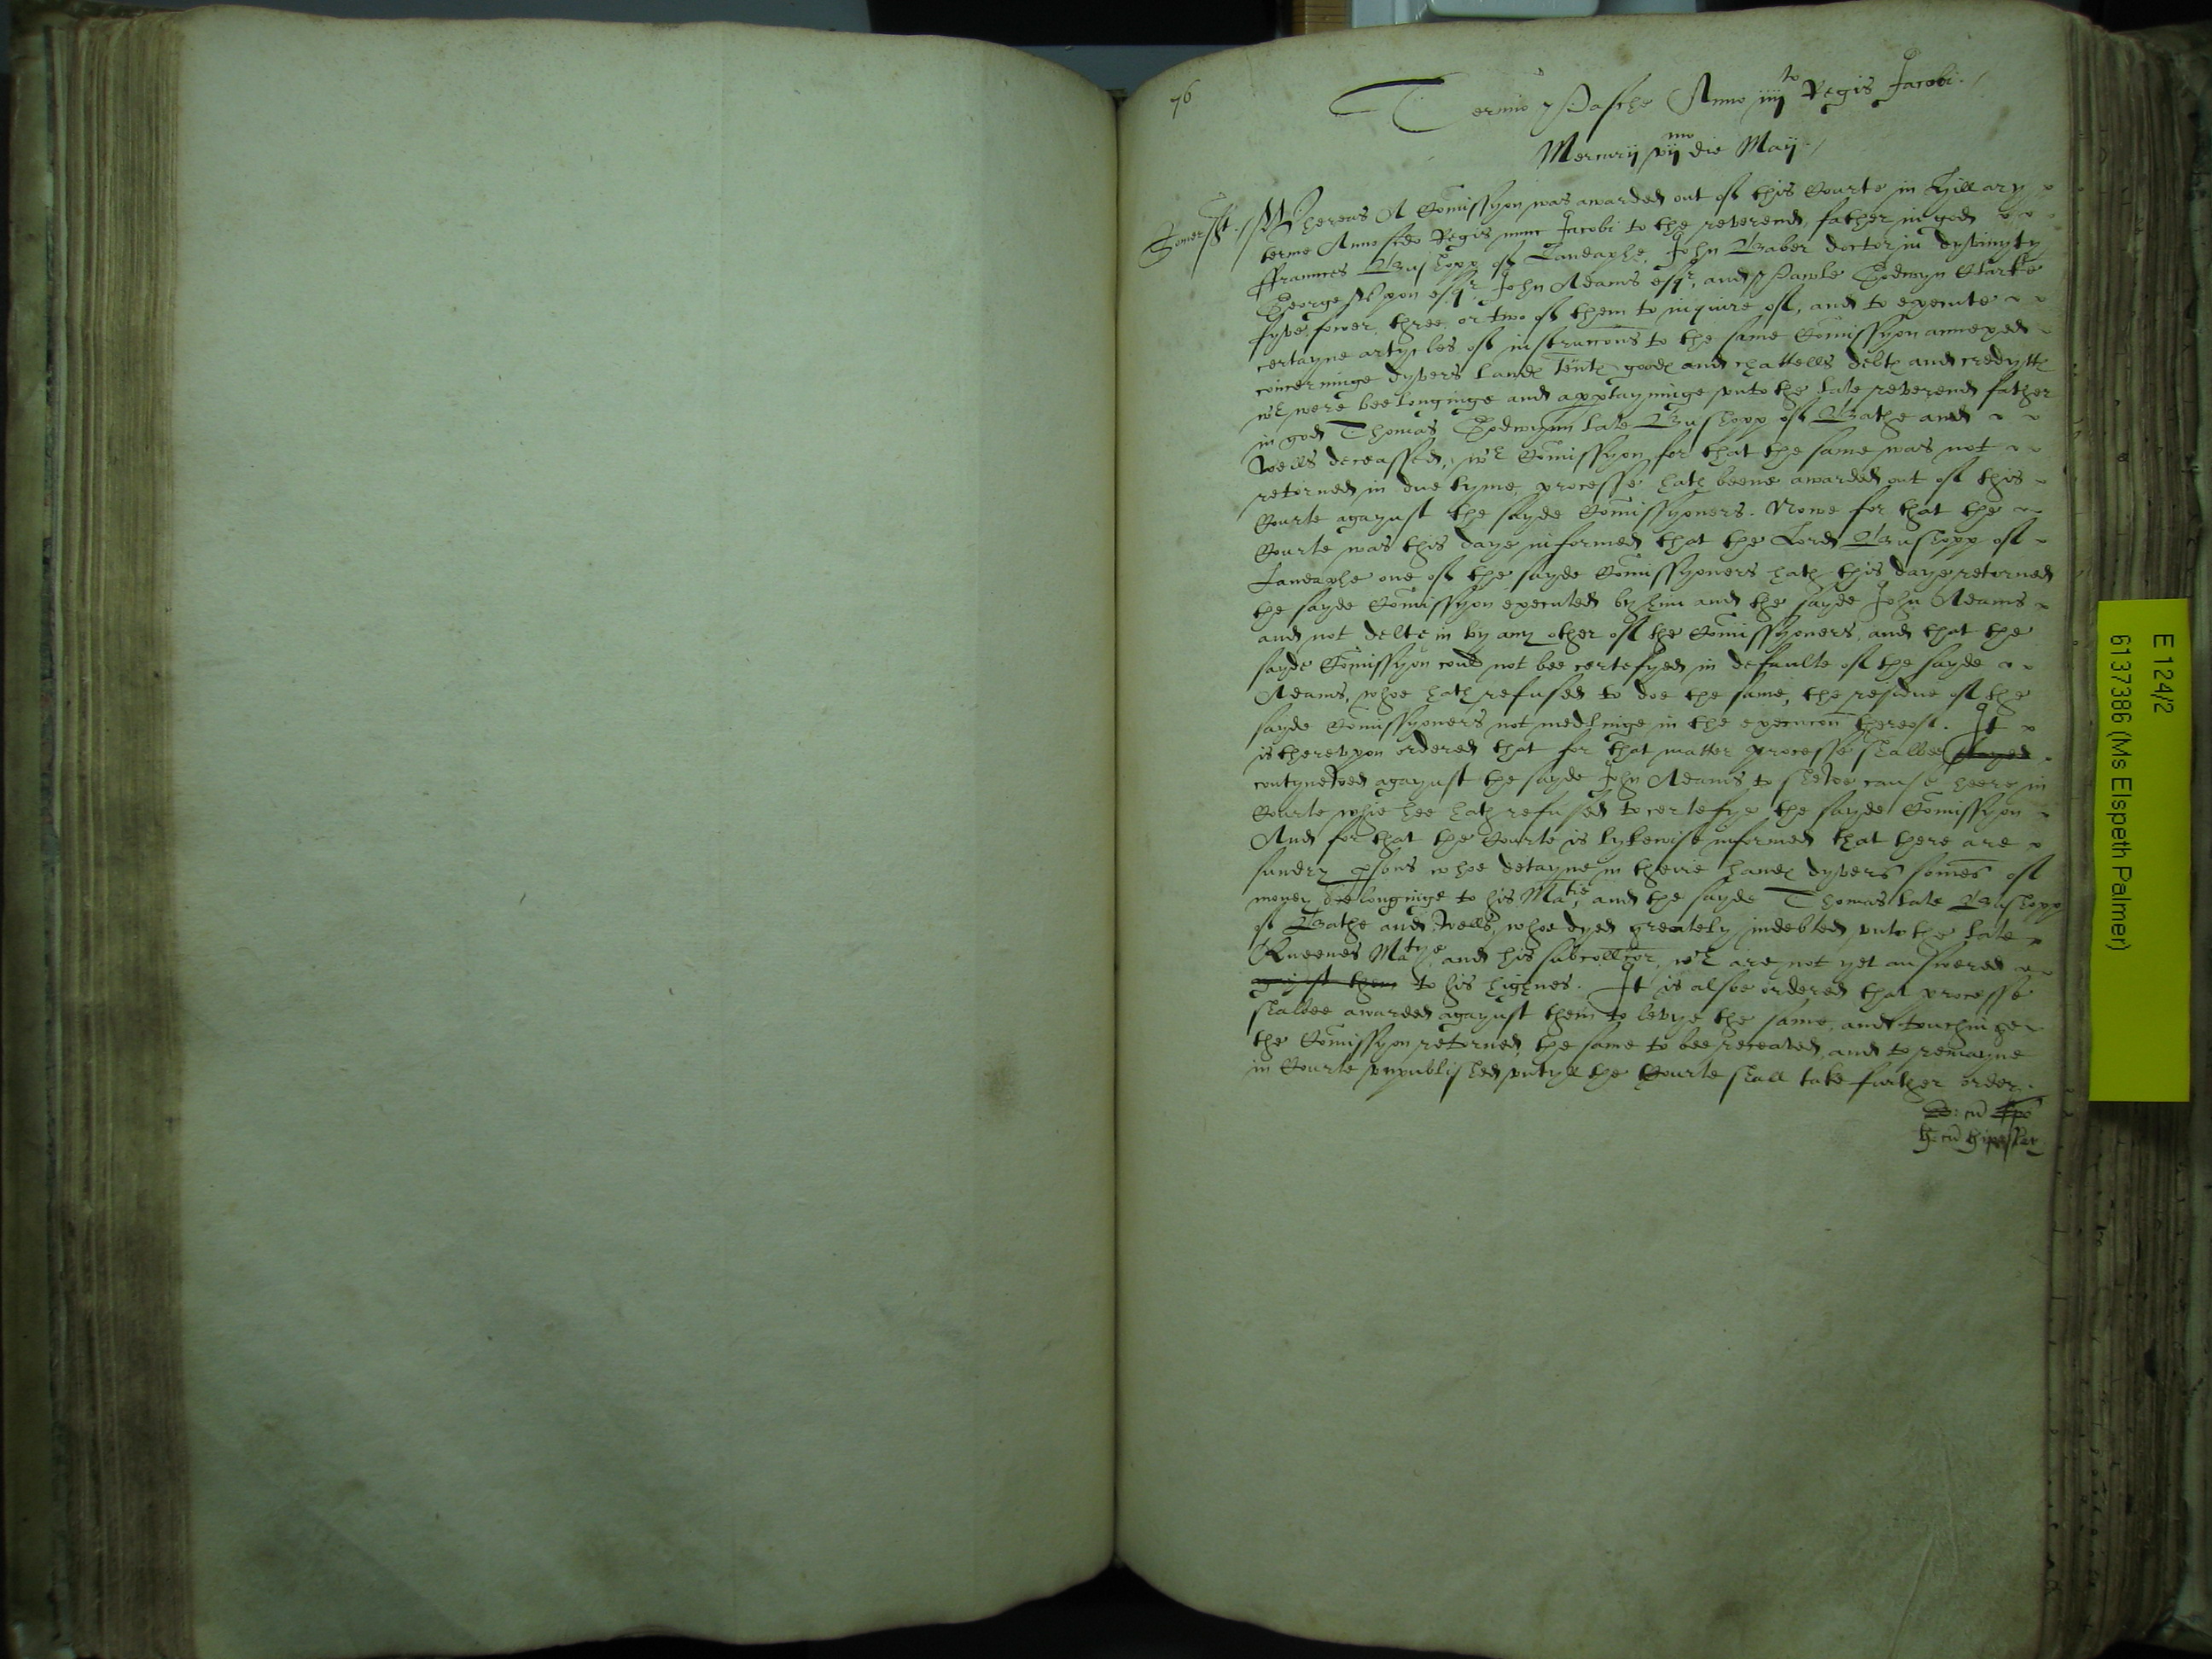 76
Termino Pasche Anno iiijto Regis Jacobi
Mercurij vijmo die Maij
Somerset
Whereas A Comissyon was awarded out of this Courte in Hillary
terme Anno scdo Regis nunc Jacobi to the reverend father in god
ffraunces Busshopp of Landaphe, John Baber doctor in dyvinyty
George Upton esqr John Adams esqr, and Pawle Godwyn Clarke
fyve, fower, three, or two of them to inquire of, and to execute
certayne artycles of instruccons to the same Comissyon annexed
concerninge dyvers landes tentes goodes and chattells debtes and credyttes
wch were beelonginge and apptayninge unto the late reverend father
in god Thomas Godwynn late Busshopp of Bathe and
Wells deceassed, wch Comissyon for that the same was not
retorned in due tyme, processe hath beene awarded out of this
Courte agaynst the sayde Comissyoners. Nowe for that the
Courte was this daye informed that the Lord Busshopp of
Landaphe one of the sayde Comissyoners hath this daye retorned
the sayde Comissyon executed by him and the sayde John Adams
and not delte in by any other of the Comissyoners, and that the
sayde Comissyon could not bee certefyed in defaulte of the sayde
Adams, whoe hath refused to doe the same, the residue of the
sayde Comissyoners not medlinge in the execucon thereof. It
is thereuppon ordered that for that matter processe shalbee stayed
contynewed agaynst the sayde John Adams to shewe cause heere in
Courte whie hee hath refused to certefye the sayde Comissyon
And for that the Courte is lykewise informed that there are
sundry psons whoe detayne in theire handes dyvers somes of
money beelonginge to his Matie, and the sayde Thomas late Busshopp
of Bathe and Wells, whoe dyed greately indebted unto the late
Queenes Matye, and his subcollector, wch are not yet answered
against them to his highnes. It is alsoe ordered that processe
shalbee awarded agaynst them to levye the same, and touchinge
the Comissyon retorned, the same to bee receaved, and to remayne
in Courte unpublished untyll the Courte shall take further order.
E 124/2
6137386 (Ms Elspeth Palmer)